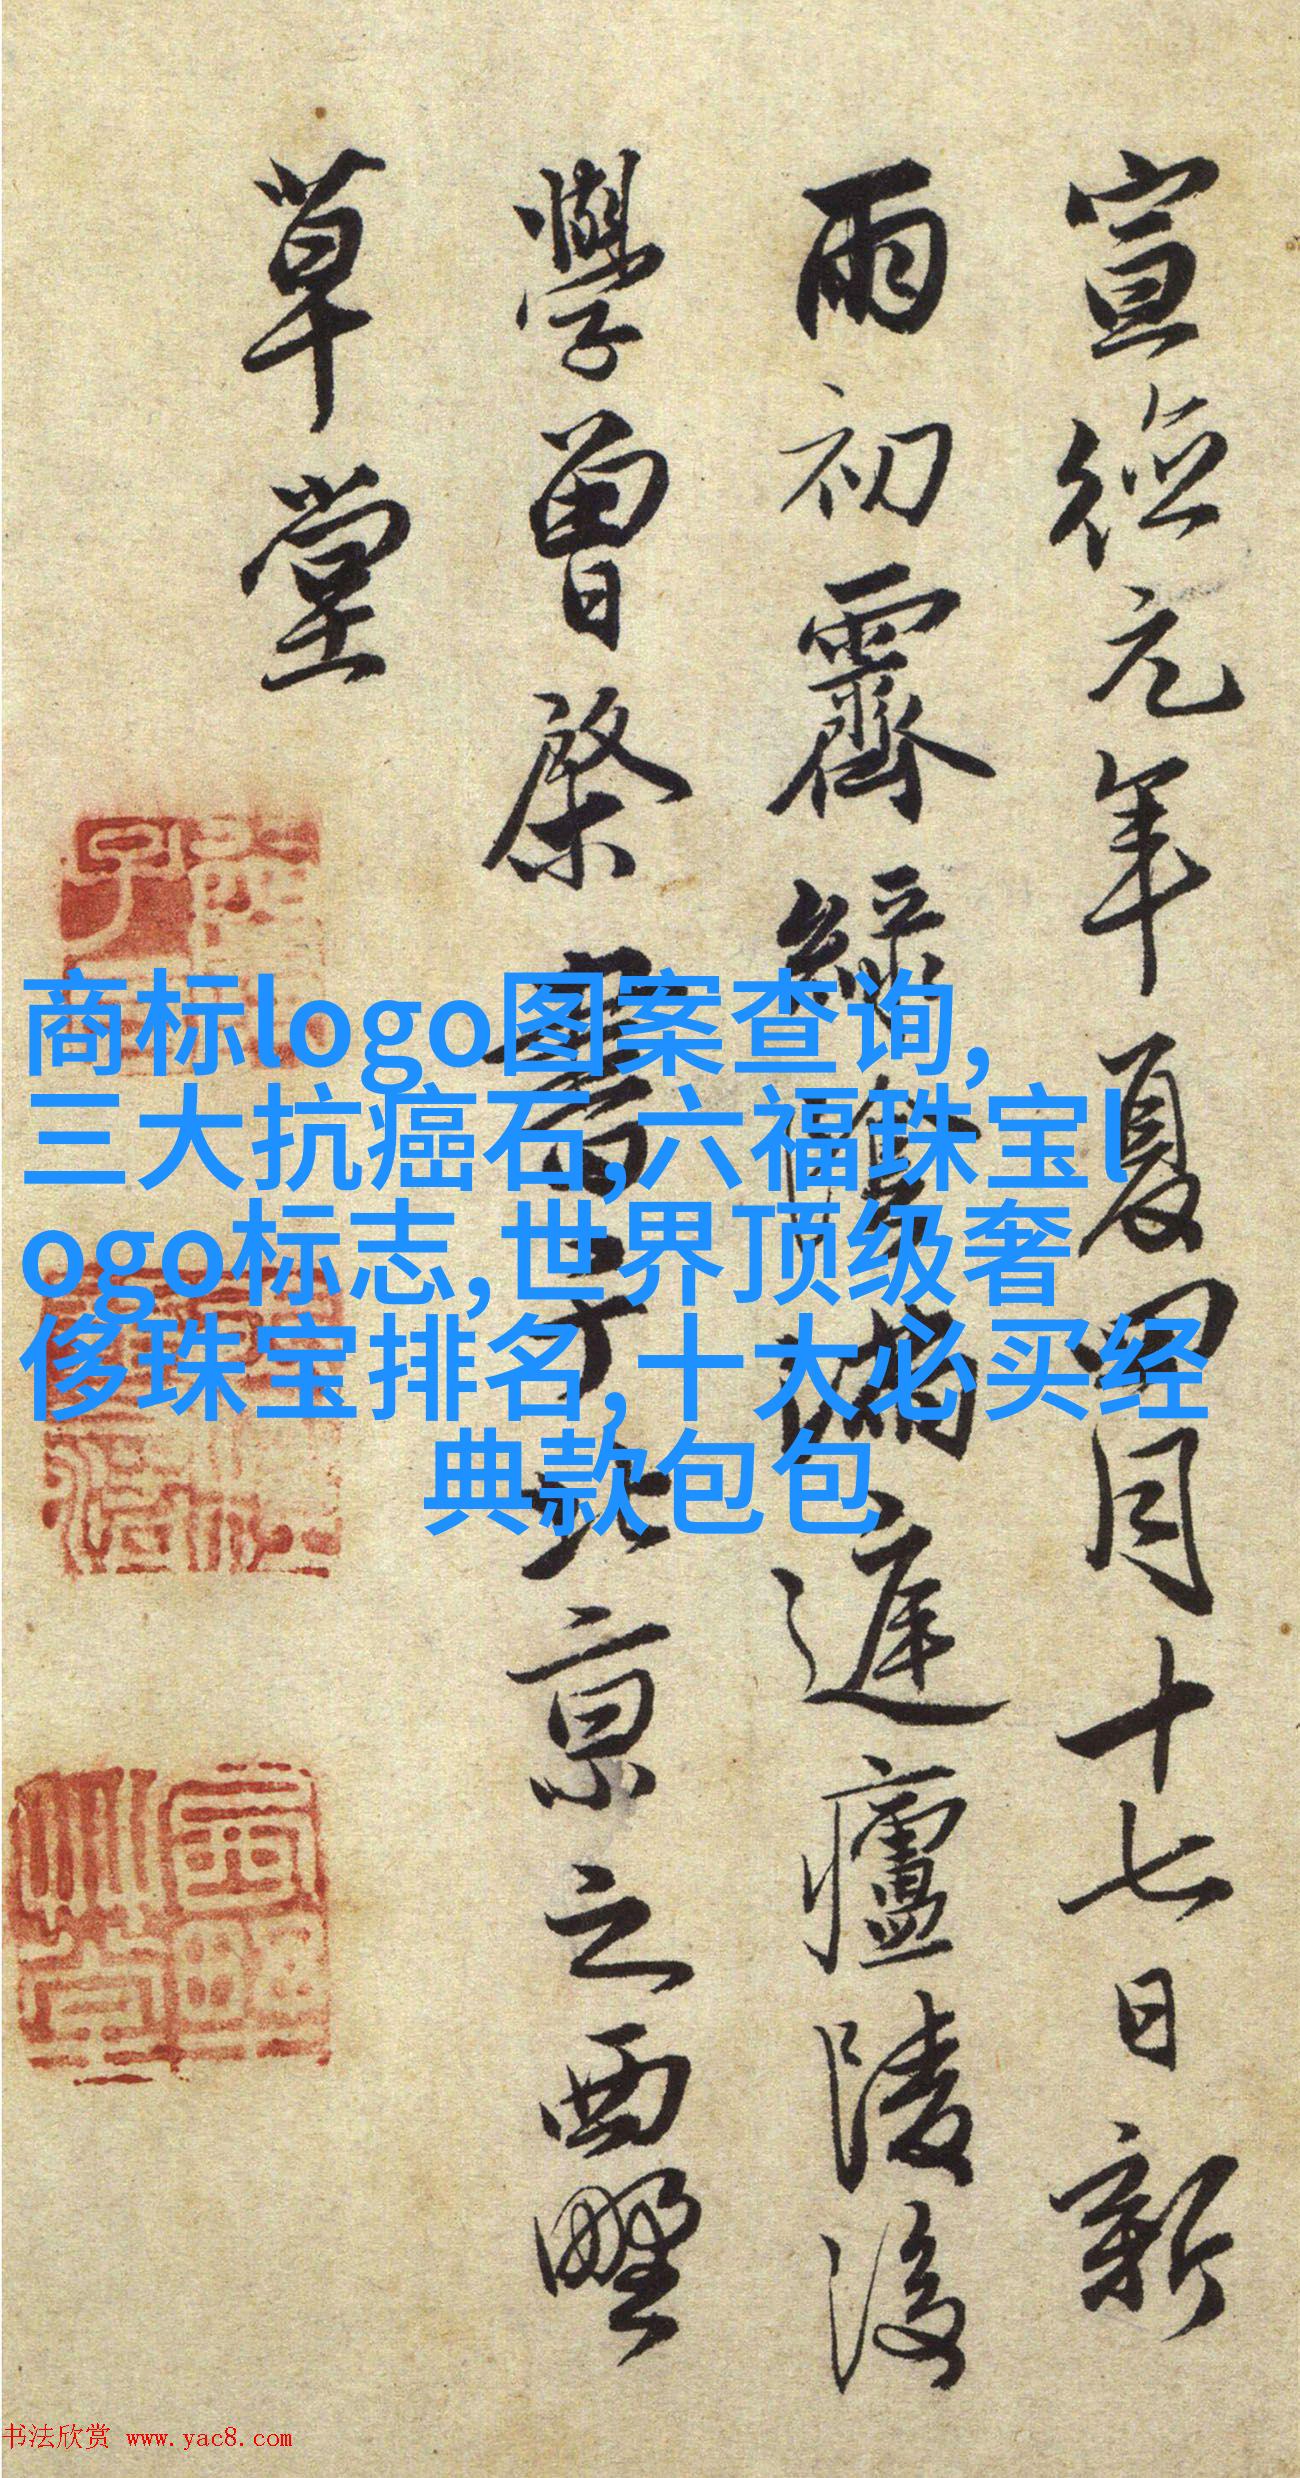 宣德元年夏四月十七日新
雨初霽綠陰滿庭廬陵後
學曾棨書于北京之西墅
草堂
商标logo图案查询,
三大抗癌石,六福珠宝l
ogo标志,世界顶级奢
侈珠宝排名,十大必买经
典款包包
书法欣赏 www.yac8.com